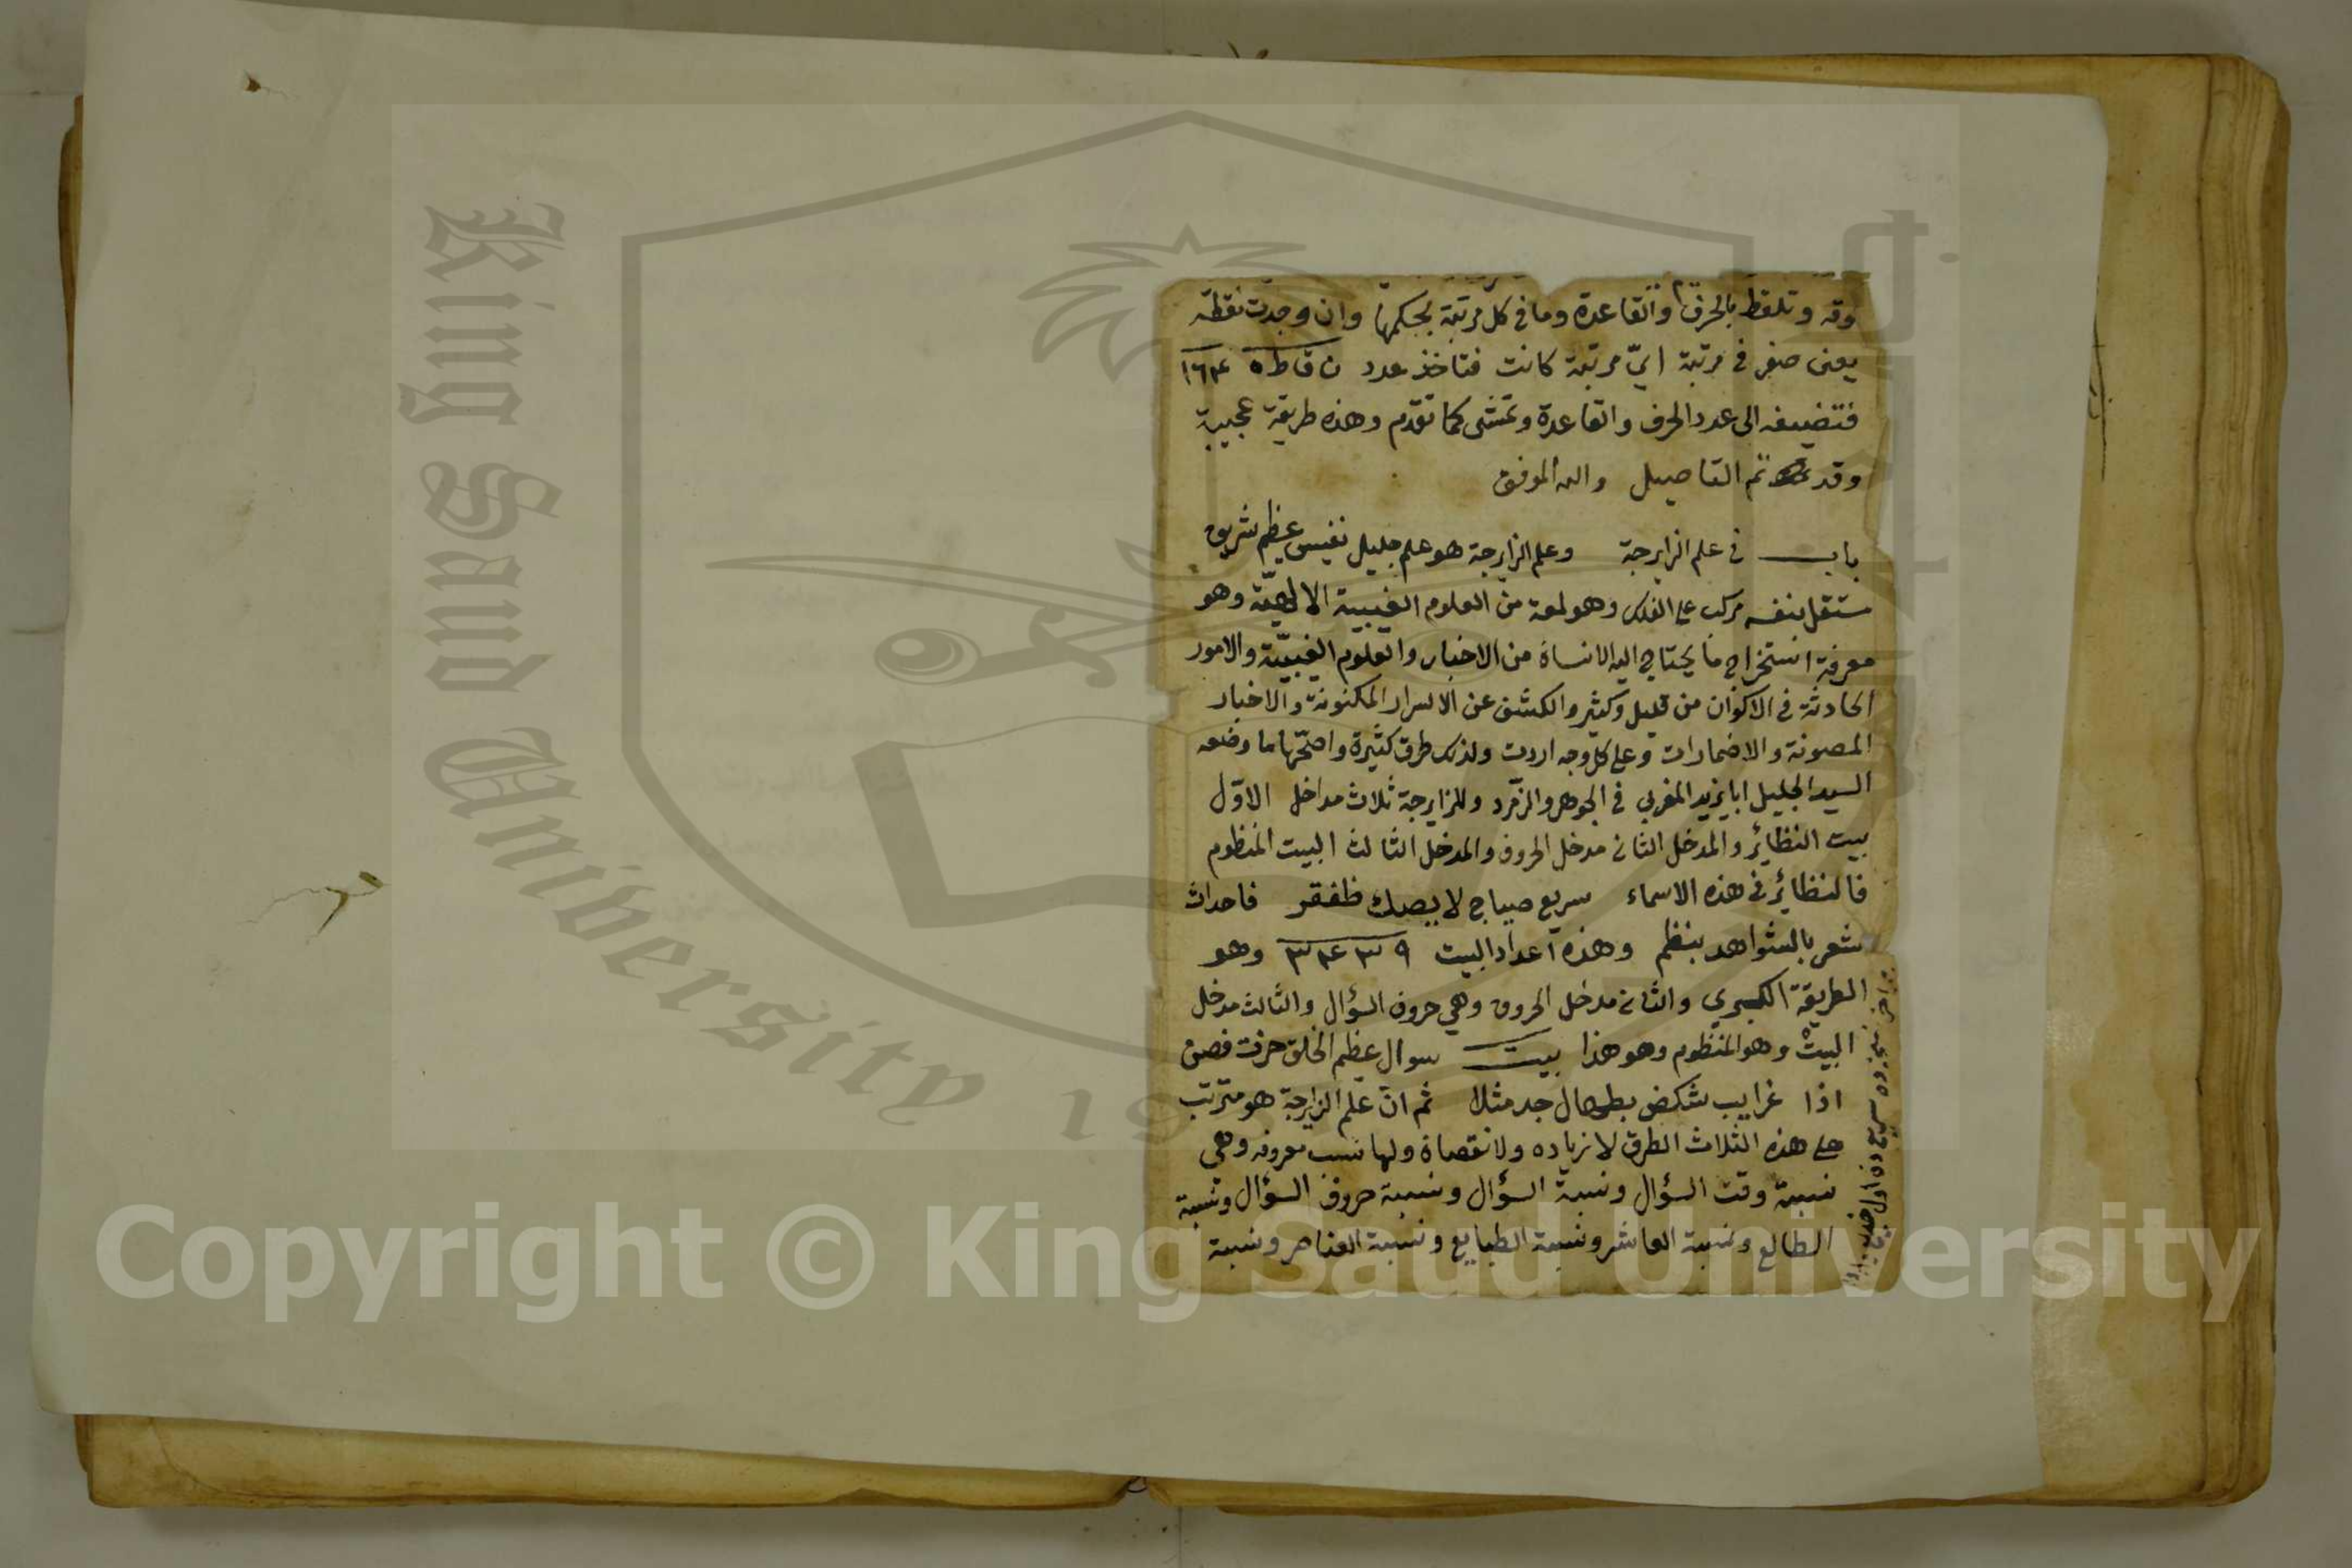 وقه وتلقط بالحرف والقاعدة وما في كل مرتبة بحكمها وان وجدت نقطة
يعنى صفر في مرتبة ايّ مرتبة كانت فتاخذ عدد ١٦٤
فتضيفه الى عدد الحرف والقاعدة وتمشى كما تقدم وهذه طريقة عجيبة
وقد تم التفاصيل والله الموفق
باب في علم الزايرجة وعلم الزايرجة هو علم جليل نفيس عظيم شريف
مستقل بنفسه مركب على الفلك وهو لمعة من العلوم الغيبية الالهيّة وهو
معرفة استخراج ما يحتاج اليه الانسان من الاخبار والعلوم الغيبيّة والامور
الحادثة في الاكوان من قليل وكثير والكشف عن الاسرار المكنونة والاخبار
المصونة والاضمارات وعلى كل وجه اردت ولذلك طرق كثيرة واصحّها ما وضعه
السيد الجليل ابا يزيد المغربي في الجوهر والزمّرد وللزايرجة ثلاث مداخل الاوّل
بيت النظائر والمدخل الثاني مدخل الحروف والمدخل الثالث البيت المنظوم
فالنظائر في هذه الاسماء سريع صياح لا يصك ظفقر فاحداث
شعر بالشواهد بنظم وهذه اعداد البيت ٣٤٣٩ وهو
الطريقة الكبرى والثاني مدخل الحروف وهي حروف السؤال والثالث مدخل
البيت وهو المنظوم وهو هذا بيت سوال عظيم الخلق حزت فصن
اذا غرايب شك ضبطه ال جد مثلا ثم ان علم الزايرجة هو مترتب
على هذه الثلاث الطرق لا زياده ولا نقصان ولها نسب معروفه وهي
نسبة وقت السؤال ونسبة السؤال ونسبة حروف السؤال ونسبة
الطالع ونسبة العاشر ونسبة الطبايع ونسبة العناصر ونسبة
King Saud University
19
Copyright © King Saud University